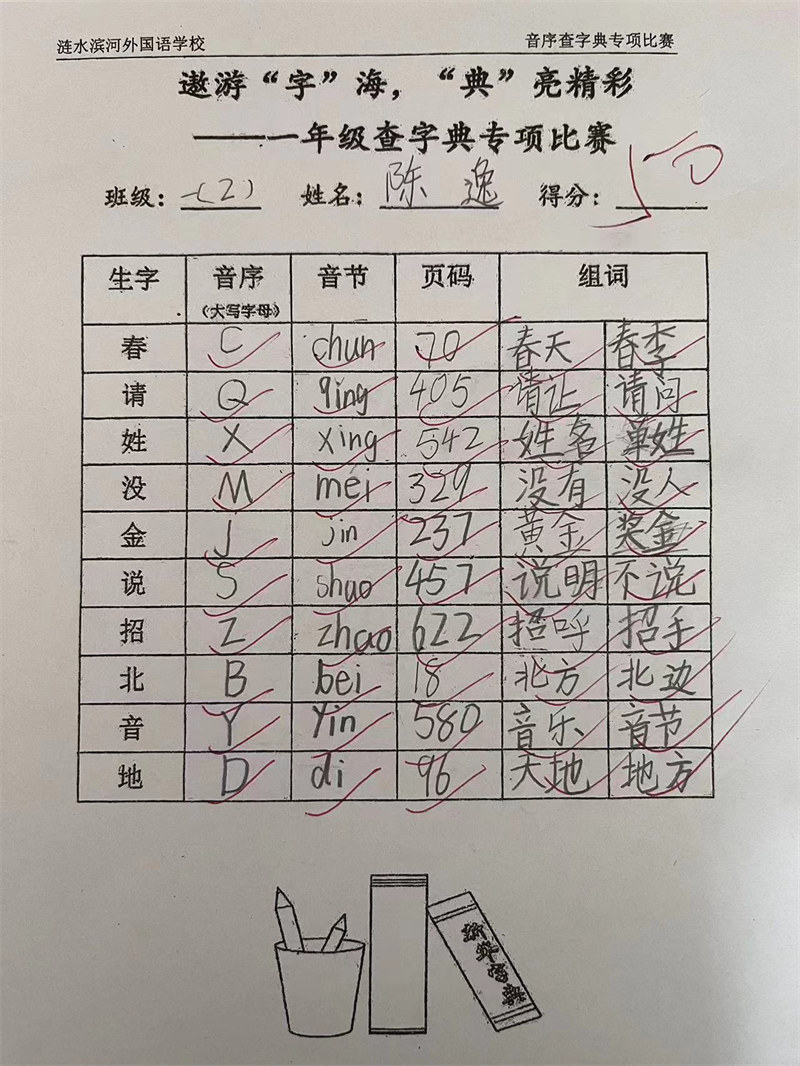 涟水滨河外国语学校 音序查字典专项比赛
遨游“字”海，“典”亮精彩
——一年级查字典专项比赛
班级：一(2) 姓名：陈逸 得分：50
生字 音序 音节 页码 组词
（大写字母）
春 C chun 70 春天 春季
请 Q qing 405 请让 请问
姓 X xing 542 姓名 单姓
没 M méi 329 没有 没人
金 J jin 237 黄金 奖金
说 S shuo 457 说明 不说
招 Z zhao 622 招呼 招手
北 B bei 18 北方 北边
音 Y yin 580 音乐 音节
地 D di 96 天地 地方
新华字典